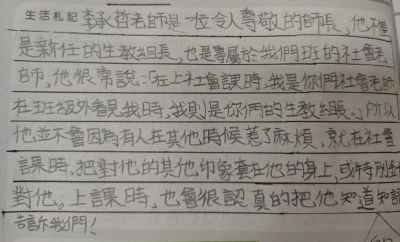 生活札記 李永哲老師是一位令人尊敬的師長，他不僅
是新任的生教組長，也是專屬於我們班的社會老
師，他很常說：「在上社會課時，我是你們社會老師
在班級外看見我時，我則是你們的生教組長。」所以
他並不會因為有人在其他時候惹了麻煩，就在社會
課時，把對他的其他印象套在他的身上，或特別針
對他。上課時，也會很認真的把他知道知識
告訴我們！